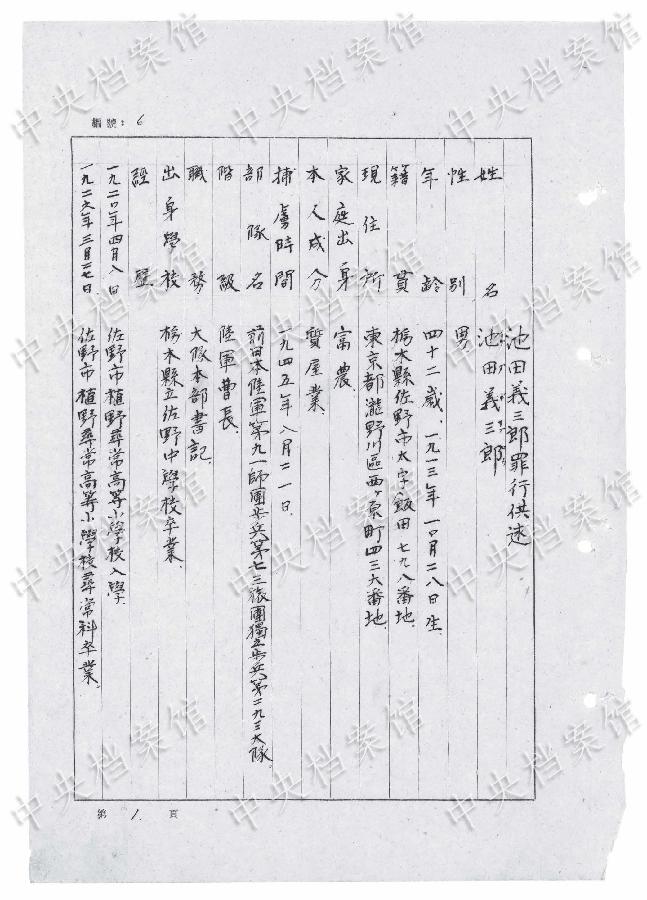 編號：6
池田義三郎罪行供述
姓名 池田義三郎
性別 男．
年齡 四十二歳．一九一三年一〇月二八日生．
籍貫 栃木縣佐野市大字飯田七九八番地．
現住所 東京都瀧野川區西ヶ原町四三六番地．
家庭出身 富農．
本人成分 質屋業．
捕虜時間 一九四五年八月二一日．
部隊名 前日本陸軍第九一師團步兵第七三旅團獨立步兵第二九三大隊．
階級 陸軍曹長．
職務 大隊本部書記．
出身學校 栃木縣立佐野中學校卒業．
經歷
一九二〇年四月八日 佐野市植野尋常高等小學校入學．
一九二六年三月二七日． 佐野市植野尋常高等小學校尋常科卒業．
第 1. 頁
中央档案馆